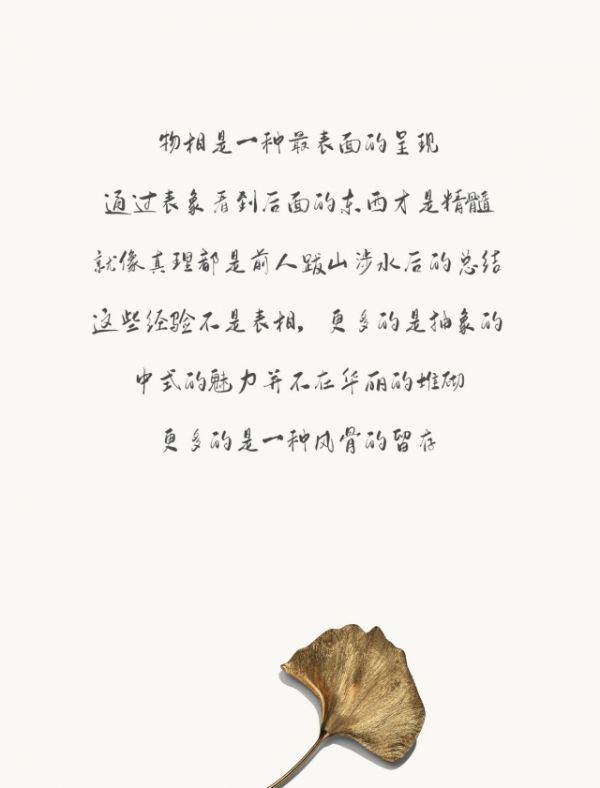 物相是一种最表面的呈现
通过表象看到后面的东西才是精髓
就像真理都是前人跋山涉水后的总结
这些经验不是表相，更多的是抽象的
中式的魅力并不在华丽的堆砌
更多的是一种风骨的留存